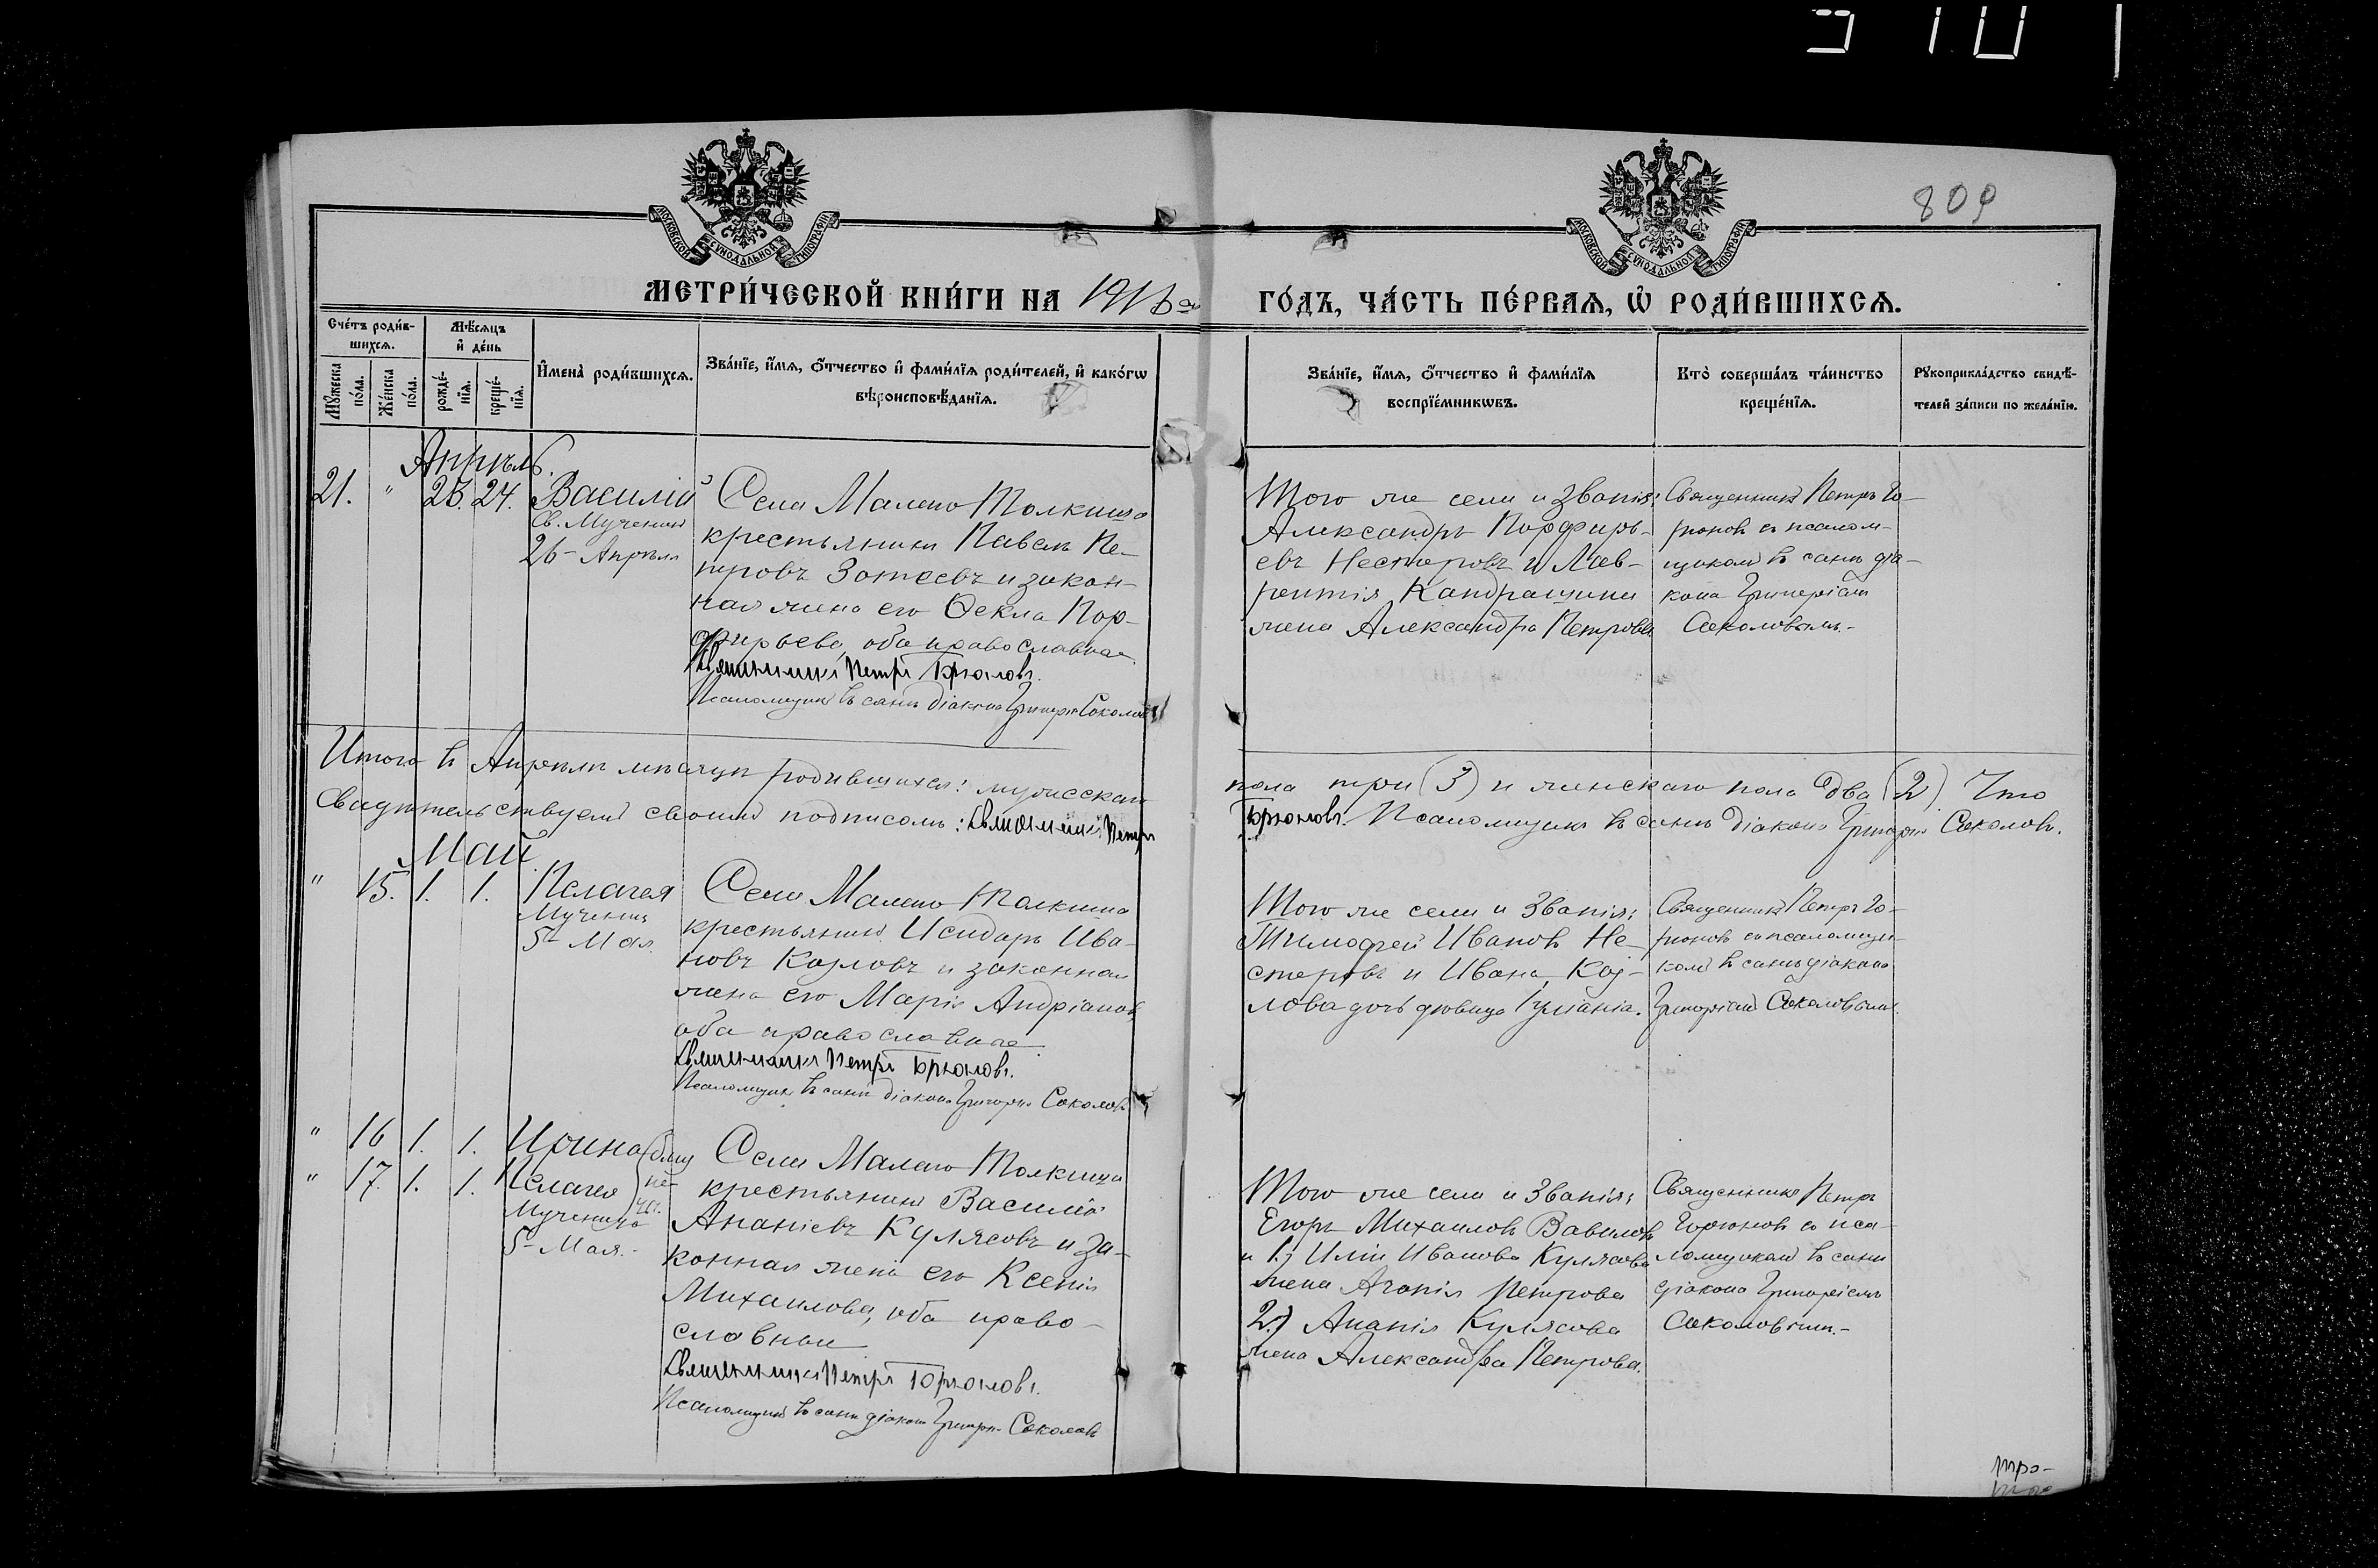 810
809
МОСКОВСКОЙ СѴНОДАЛЬНОЙ ТИПОГРАФІИ
МОСКОВСКОЙ СѴНОДАЛЬНОЙ ТИПОГРАФІИ
МЕТРИ́ЧЕСКОЙ КНИ́ГИ НА 1916 ГО́ДЪ, ЧА́СТЬ ПЕ́РВАЯ, Ѡ РОДИ́ВШИХСЯ.
Сче́тъ роди́в-
шихся.
Мꙋжеска по́ла.
Же́нска по́ла.
Мѣ́сяцъ
и҆ де́нь
рожде́-
нїя.
креще́-
нїя.
И҆мена̀ роди́вшихся.
Зва́нїе, и҆́мя, ѻ҆́тчество и҆ фами́лїя роди́телей, и҆ како́гѡ
вѣроисповѣ́данїя.
Зва́нїе, и҆́мя, ѻ҆́тчество и҆ фами́лїя
воспрїе́мникѡвъ.
Кто̀ соверша́лъ та́инство
креще́нїя.
Рꙋкоприкла́дство свидѣ́-
телей за́писи по жела́нїю.
Апрѣль.
21. " 23. 24. Василій
Св. Мученик
26 - Апрѣля
Села Малаго Толкиша
крестьянинъ Павелъ Пе-
тровъ Зотеевъ и закон-
ная жена его Ѳекла Пор-
фирьева, оба православные.
Священникъ Петръ Горюновъ.
Псаломщикъ въ санѣ діакона Григорій Соколовъ
Того же села и званія:
Александръ Порфирь-
евъ Нестеровъ и Лав-
рентія Кандрашина
жена Александра Петрова
Священникъ Петръ Го-
рюновъ съ псалом-
щикомъ въ санѣ діа-
кона Григоріемъ
Соколовымъ.-
Итого въ Апрѣлѣ мѣсяцѣ родившихся: мужескаго пола три (3) и женскаго пола два (2). Что
свидѣтельствуемъ своимъ подписомъ: Священникъ Петръ Горюновъ. Псаломщикъ въ санѣ діакона Григорій Соколовъ.
Май
" 15. 1. 1. Пелагея
Мученица
5 - Мая
Села Малаго Толкиша
крестьянинъ Исидаръ Ива-
новъ Козловъ и законная
жена его Марія Андріанова
оба православные
Священникъ Петръ Горюновъ.
Псаломщикъ въ санѣ діакона Григорій Соколовъ
Того же села и званія:
Тимофей Ивановъ Не-
стеровъ и Ивана Коз-
лова дочь дѣвица Іуліанія.
Священникъ Петръ Го-
рюновъ съ псаломщи-
комъ въ санѣ діакона
Григоріемъ Соколовымъ.
" 16 1. 1. Ирина
" 17. 1. 1. Пелагея
Мученица
5 - Мая.-
Села Малаго Толкиша
крестьянинъ Василій
Ананіевъ Кулясовъ и за-
конная жена его Ксенія
Михаилова, оба право-
славные
Священникъ Петръ Горюновъ.
Псаломщикъ въ санѣ діакона Григорій Соколовъ
Того же села и званія:
Егоръ Михаиловъ Вавиловъ
и 1) Иліи Иванова Кулясова
жена Агапія Петрова
2.) Ананія Кулясова
жена Александра Петрова.
Священникъ Петръ
Горюновъ съ пса-
ломщикомъ въ санѣ
діакона Григоріемъ
Соколовымъ.-